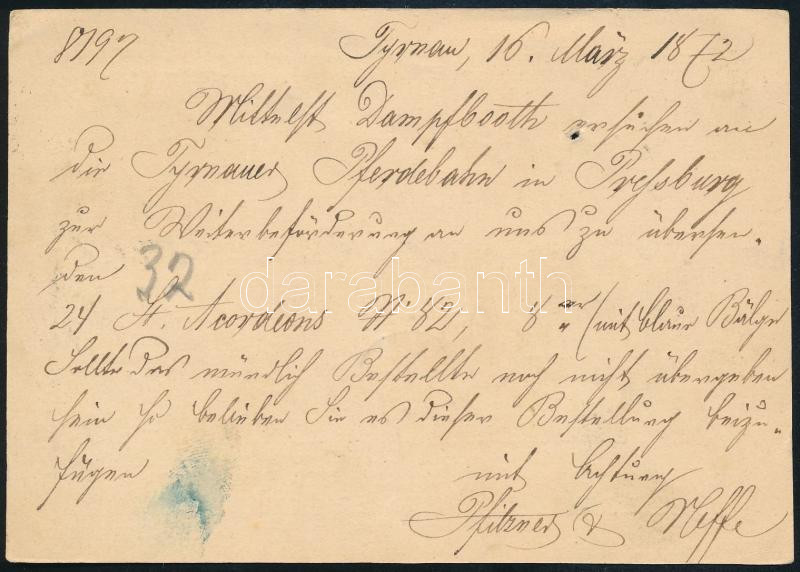 8797
Tyrnau, 16. März 1872
Mittelst Dampfbooth ersuchen an
die Tyrnauer Pferdebahn in Pressburg
zur Weiterbeförderung an uns zu übersen„
den
32
darabanth
24 St. Acordeons N° 82, 8 er (mit blaue Bälge
Sollte das mündlich Bestellte noch nicht übergeben
sein so belieben Sie es dieser Bestellung beizu„
fügen
mit Achtung
Pfitzner & Neffe